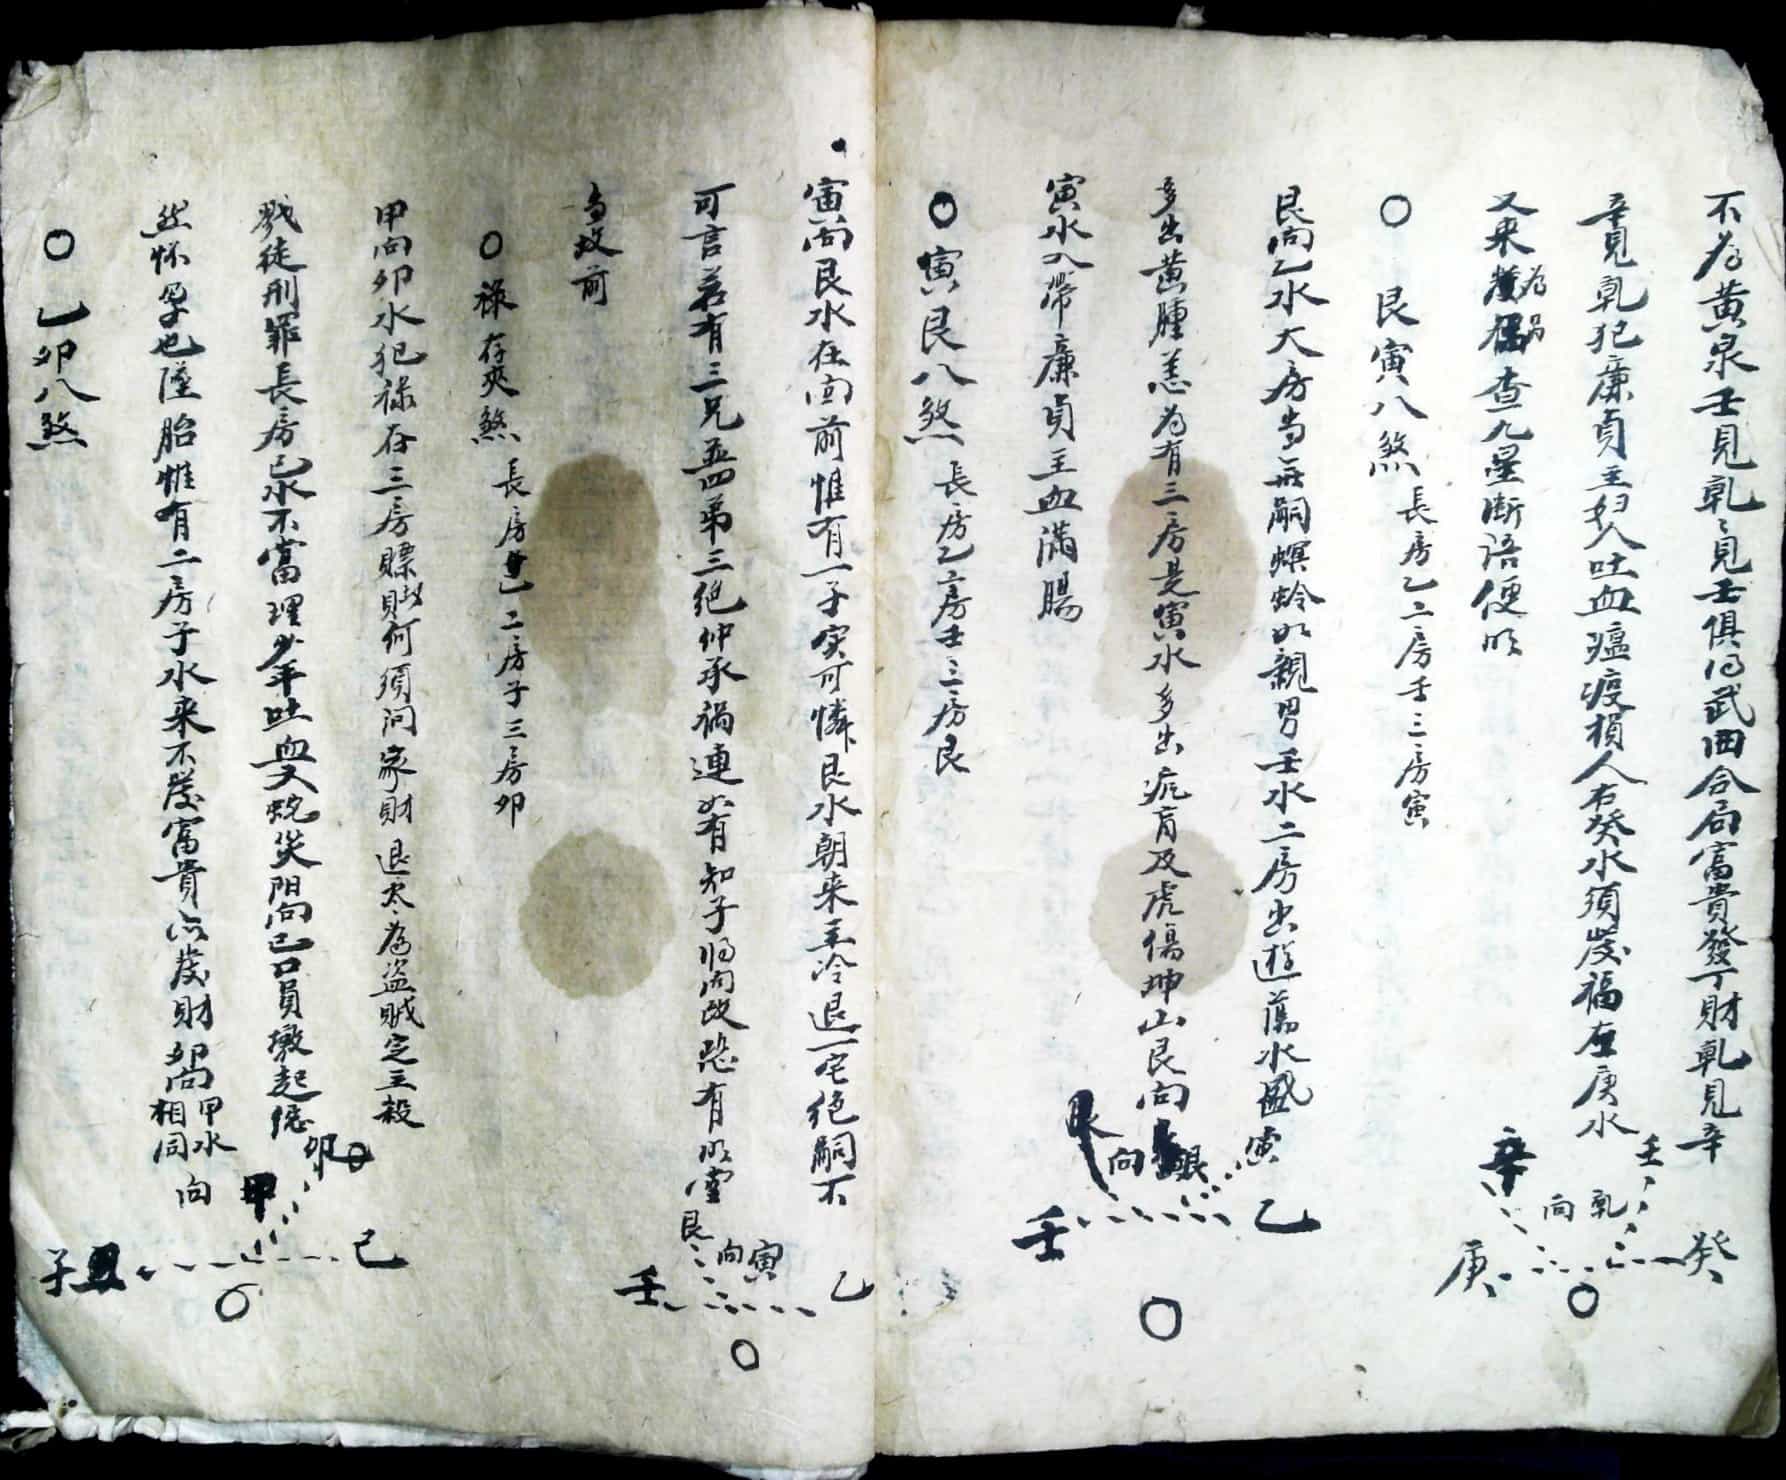 不為黃泉壬見乾乾見壬俱得武曲合局富貴發丁財乾見辛
辛見乾犯廉貞主婦人吐血瘟疫損人右癸水須發福左庚水
又來為局查九星斷語便明
○艮寅八煞 長房乙二房壬三房寅
艮向乙水大房當無嗣螟蛉如親男壬水二房出遊蕩水國寅
多出黃腫恙為有三房是寅水多出疕盲及虎傷坤山艮向
寅水入帶廉貞主血滿腸
○寅艮八煞 長房乙二房壬三房艮
寅向艮水在向前惟有一子实可憐艮水朝来主冷退一宅绝嗣不
可言若有三兄並四弟三绝仲承禍連如有知子将向改恐有明堂
当坟前
○祿存夾煞 長房巳二房子三房卯
甲向卯水犯祿存三房賭出財何須问家財退太為盜賊定主殺
戮徒刑罪長房巳水不當理少年吐血又蛇災陌向巳口員墩起
然怀孕也墮胎惟有二房子水来不發富貴亦發財卯向甲水相同
○乙卯八煞
辛 向 乾 壬
庚 癸
艮 向 寅
壬 乙
艮 向 寅
壬 乙
甲 卯 向
子 巳